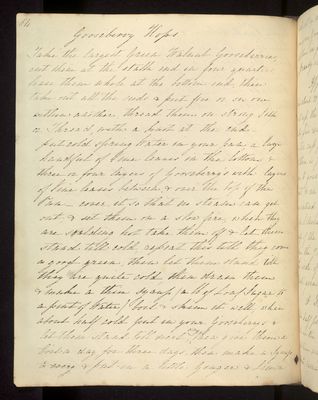 16
Gooseberry Hops
Take the largest Green Walnut Gooseberries,
cut them at the stalk end in four quarters
leave them whole at the bottom end, then
take out all the seeds & put five or six one
within another thread them on strong Silk
or Thread, with a knot at the end
put cold Spring Water in your Pan, a large
handful of Vine leaves on the bottom &
three or four layers of gooseberrys with layers
of Vine leaves between, & over the top of the
Pan cover it so that no steam can get
out, & set them on a slow fire, when they
are scalding hot take them off & let them
stand till cold, repeat this till they are
a good green, then let them stand till
they are quite cold then drain them
& make a thin syrup, a lb of Loaf Sugar to
a pint of Water, boil & skim it well, when
about half cold put in your Gooseberrys &
let them stand till next Day give them a
boil a day for three days then make a Syrup
& put in a little Ginger & Lemon